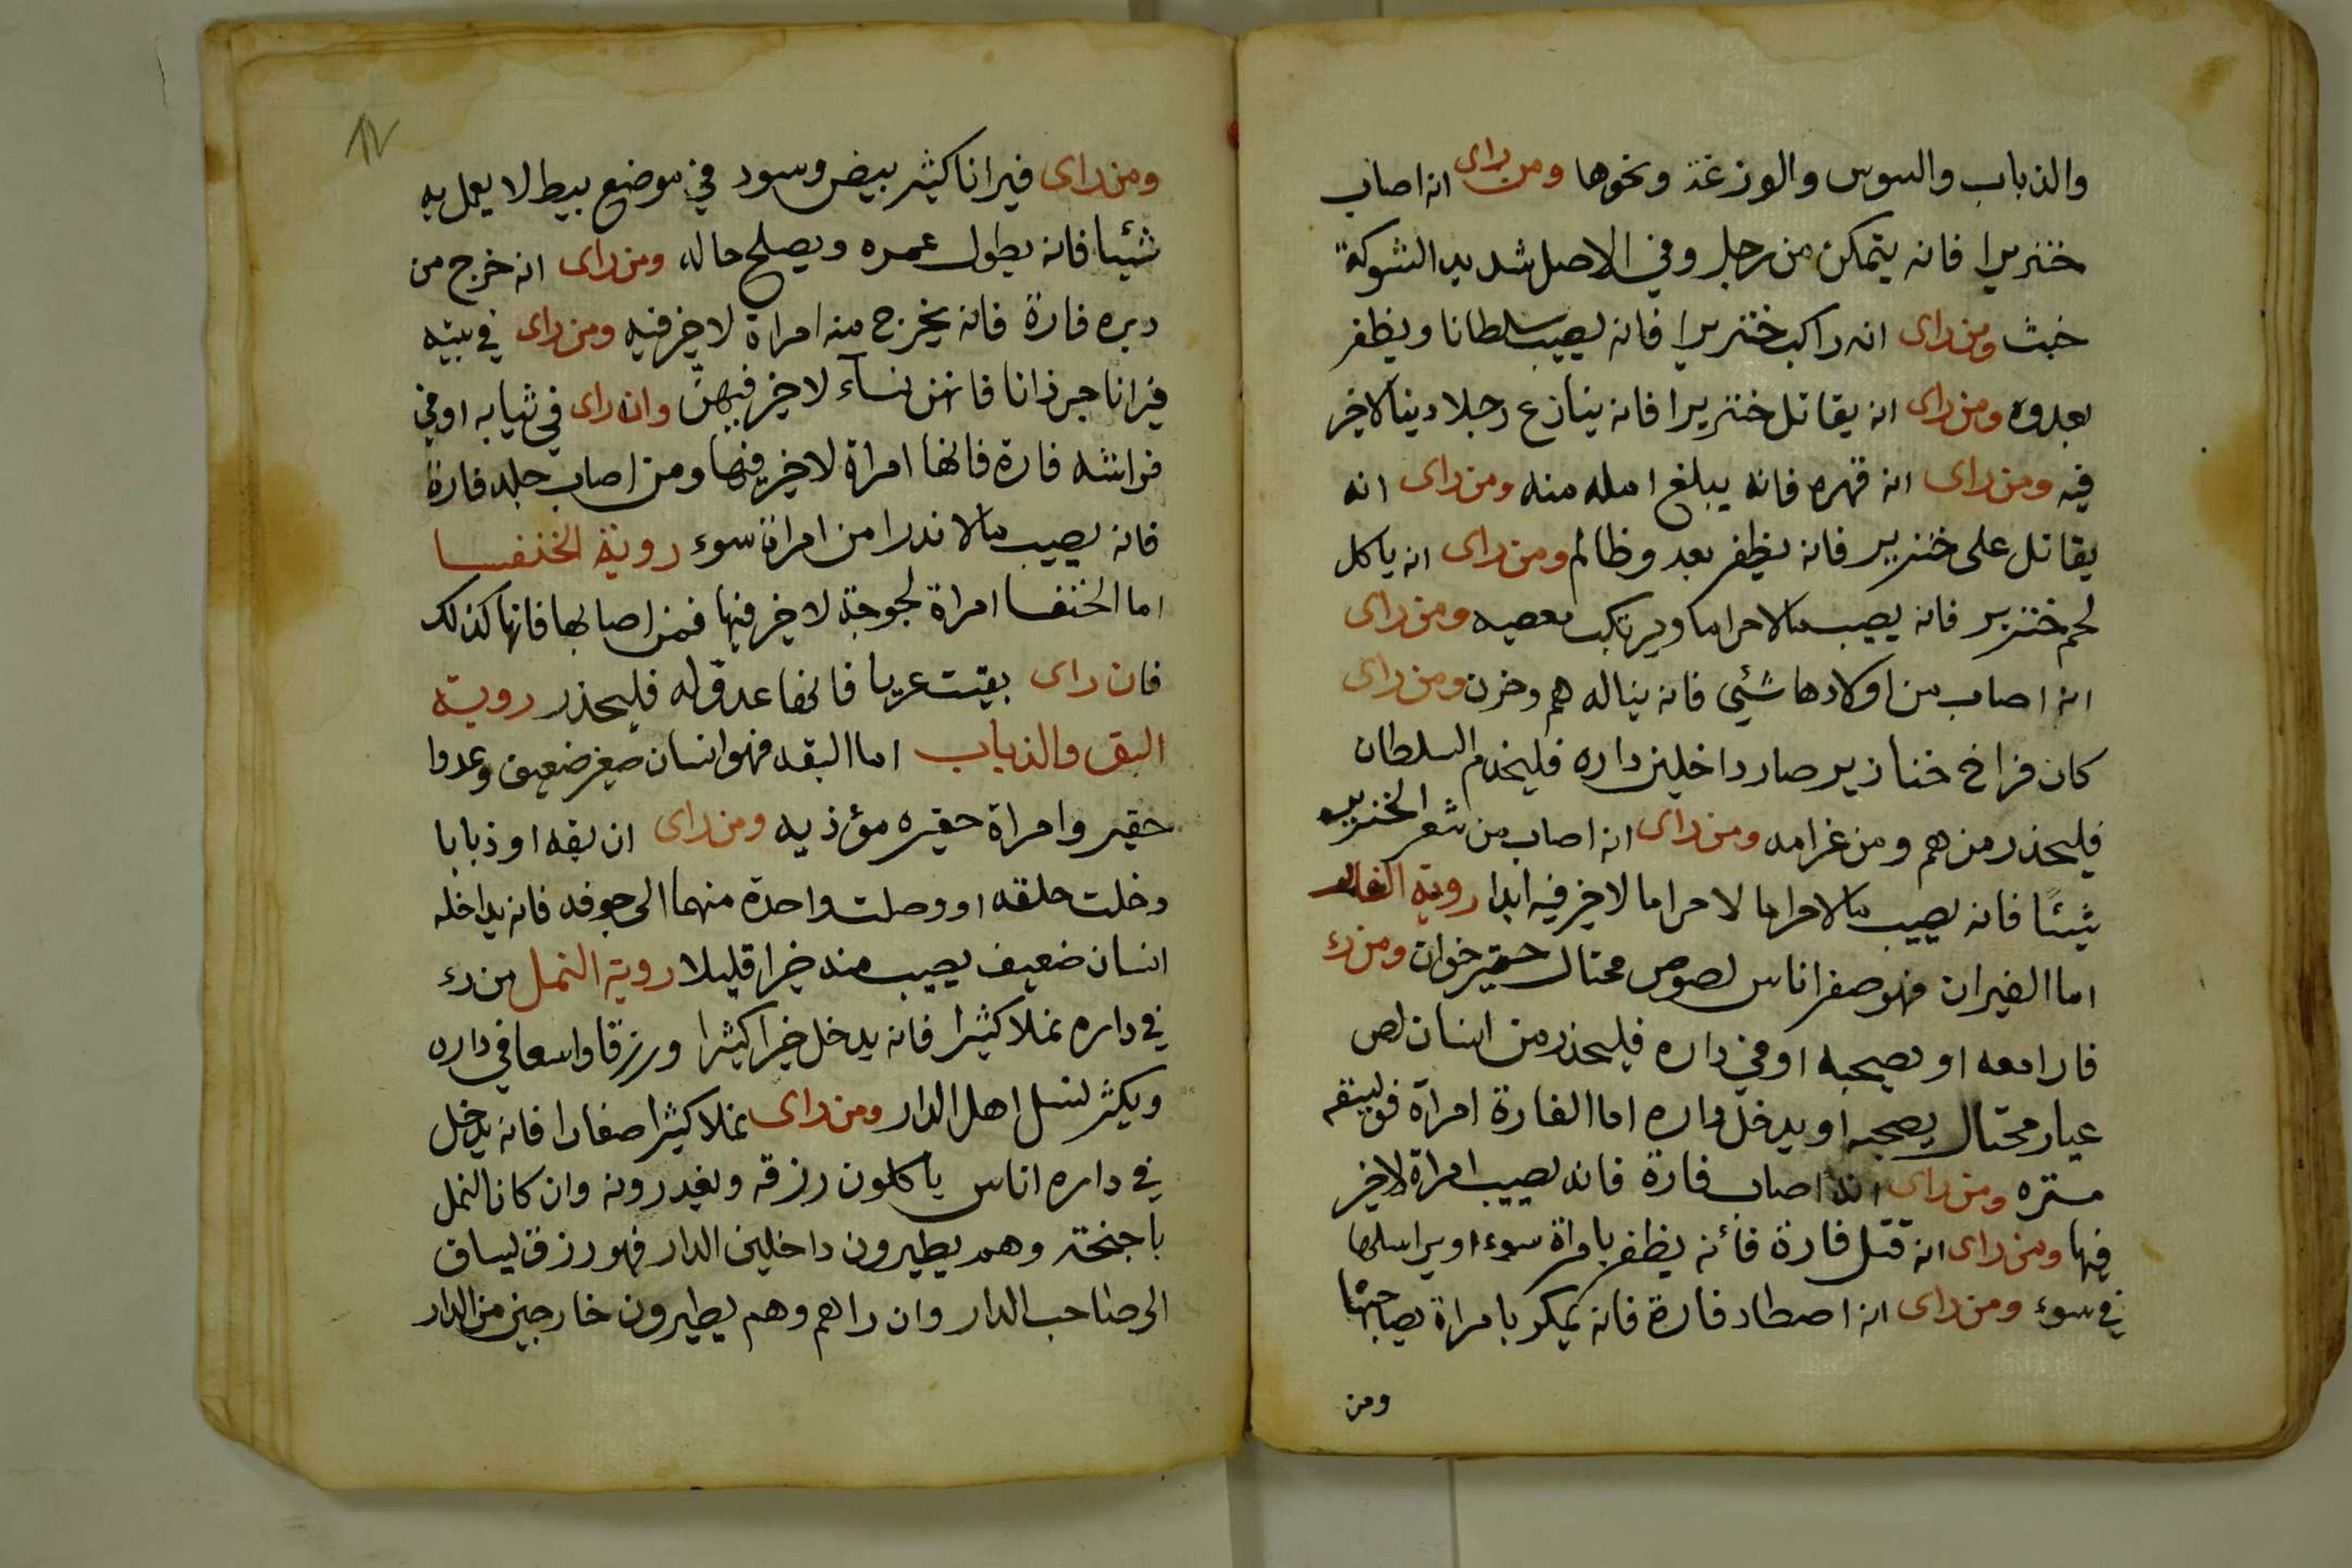 والذباب والسوس والوزغة ونحوها ومن راى انه اصاب
خنزيرا فانه يتمكن من رجل وفي الاصل شديد الشوكة
خبث ومن راى انه راكب خنزيرا فانه يصيب سلطانا ويظفر
بعدوه ومن راى انه يقاتل خنزيرا فانه ينازع رجلا دينا لاخير
فيه ومن راى انه قهره فانه يبلغ امله منه ومن راى انه
يقاتل على خنزير فانه يظفر بعدو ظالم ومن راى انه ياكل
لحم خنزير فانه يصيب مالا حراما ويرتكب معصيه ومن راى
انه اصاب من اولادها شئي فانه يناله هم وحزن ومن راى
كان فراخ خنازير صار داخلين داره فليخدم السلطان
فليحذر من هم ومن غرامه ومن راى انه اصاب من شعر الخنزير
شيئا فانه يصيب مالا حراما لا حراما لاخير فيه ابدا روية الفار
اما الفيران فهو صغر اناس لصوص محتال حقير خوان ومن رء
فارا معه او يصحبه او في داره فليحذر من انسان لص
عيار محتال يصحبه او يدخل داره اما الفارة امراة فويسقه
مستره ومن راى انه اصاب فارة فانه يصيب امراة لاخير
فيها ومن راى انه قتل فارة فأنه يظفر بامراة سوء او يراسلها
في سوء ومن راى انه اصطاد فارة فانه يمكر بامراة يصاحبها
ومن
١٧
ومن راى فيرانا كثير بيض وسود في موضع بيط لا يعمل به
شئيا فانه يطول عمره ويصلح حاله ومن راى انه خرج من
دبره فارة فانه يخرج منه امراة لاخير فيه ومن راى في بيته
فيرانا جرذانا فانهن نسآء لاخير فيهنّ وان راى في ثيابه او في
فراشه فارة فانها امراة لاخير فيها ومن اصاب جلد فارة
فانه يصيب مالا ندرا من امراة سوء روية الخنفسا
اما الخنفسا امراة لجوجة لاخير فيها فمن اصابها فانها كذلك
فان راى بقيت عربا فانها عدو له فليحذر روية
البق والذباب اما البقه فهو انسان صغير ضعيف وعدوا
حقير وامراة حقيره مؤذيه ومن راى ان بقه او ذبابا
دخلت حلقه او وصلت واحدة منهما الى جوفه فانه يداخله
انسان ضعيف يصيب منه خيرا قليلا روية النمل من رء
في داره نملا كثيرا فانه يدخل خيرا كثيرا ورزقا واسعا في داره
ويكثر لنسل اهل الدار ومن راى نملا كثيرا صغارا فانه يدخل
في داره اناس ياكلون رزقه ويغدرونه وان كان النمل
باجنحته وهم يطيرون داخلين الدار فهو رزق يساق
الى صاحب الدار وان راهم وهم يطيرون خارجين من الدار